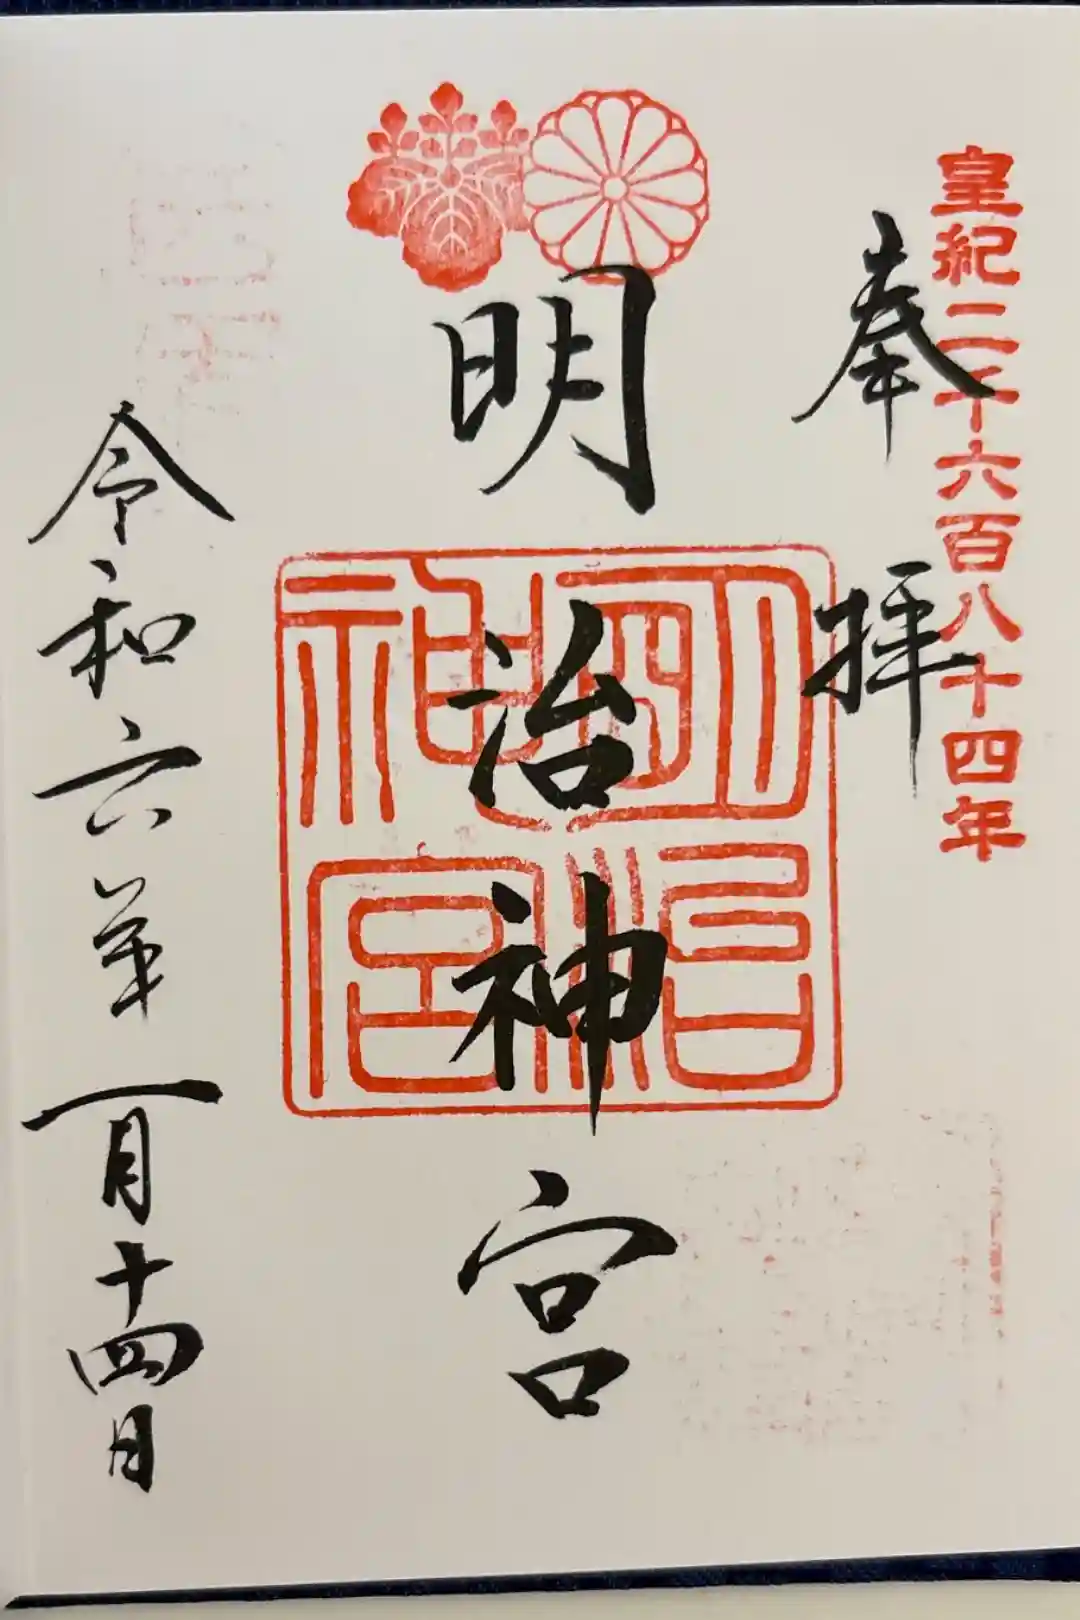 皇紀二千六百八十四年
奉拝
明治神宮
明治神宮
令和六年一月十四日